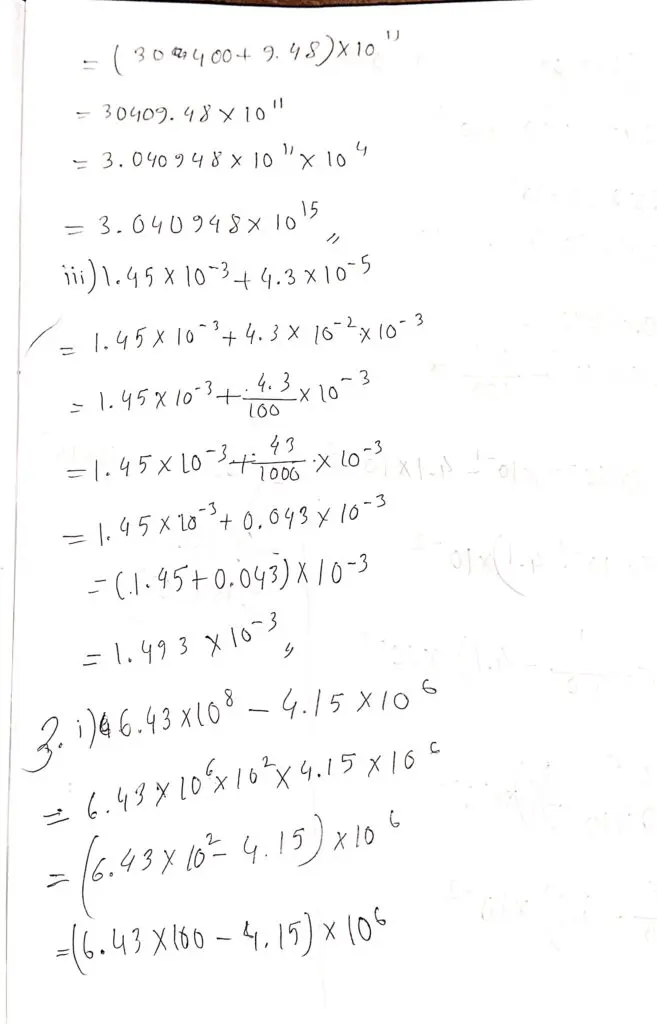 = (30400 + 9.48) × 10¹¹
= 30409.48 × 10¹¹
= 3.040948 × 10¹¹ × 10⁴
= 3.040948 × 10¹⁵ //
iii) 1.45 × 10⁻³ + 4.3 × 10⁻⁵
= 1.45 × 10⁻³ + 4.3 × 10⁻² × 10⁻³
= 1.45 × 10⁻³ + 4.3/100 × 10⁻³
= 1.45 × 10⁻³ + 43/1000 × 10⁻³
= 1.45 × 10⁻³ + 0.043 × 10⁻³
= (1.45 + 0.043) × 10⁻³
= 1.493 × 10⁻³ //
3. i) 6.43 × 10⁸ – 4.15 × 10⁶
= 6.43 × 10⁶ × 10² × 4.15 × 10⁶
= (6.43 × 10² – 4.15) × 10⁶
= (6.43 × 100 – 4.15) × 10⁶